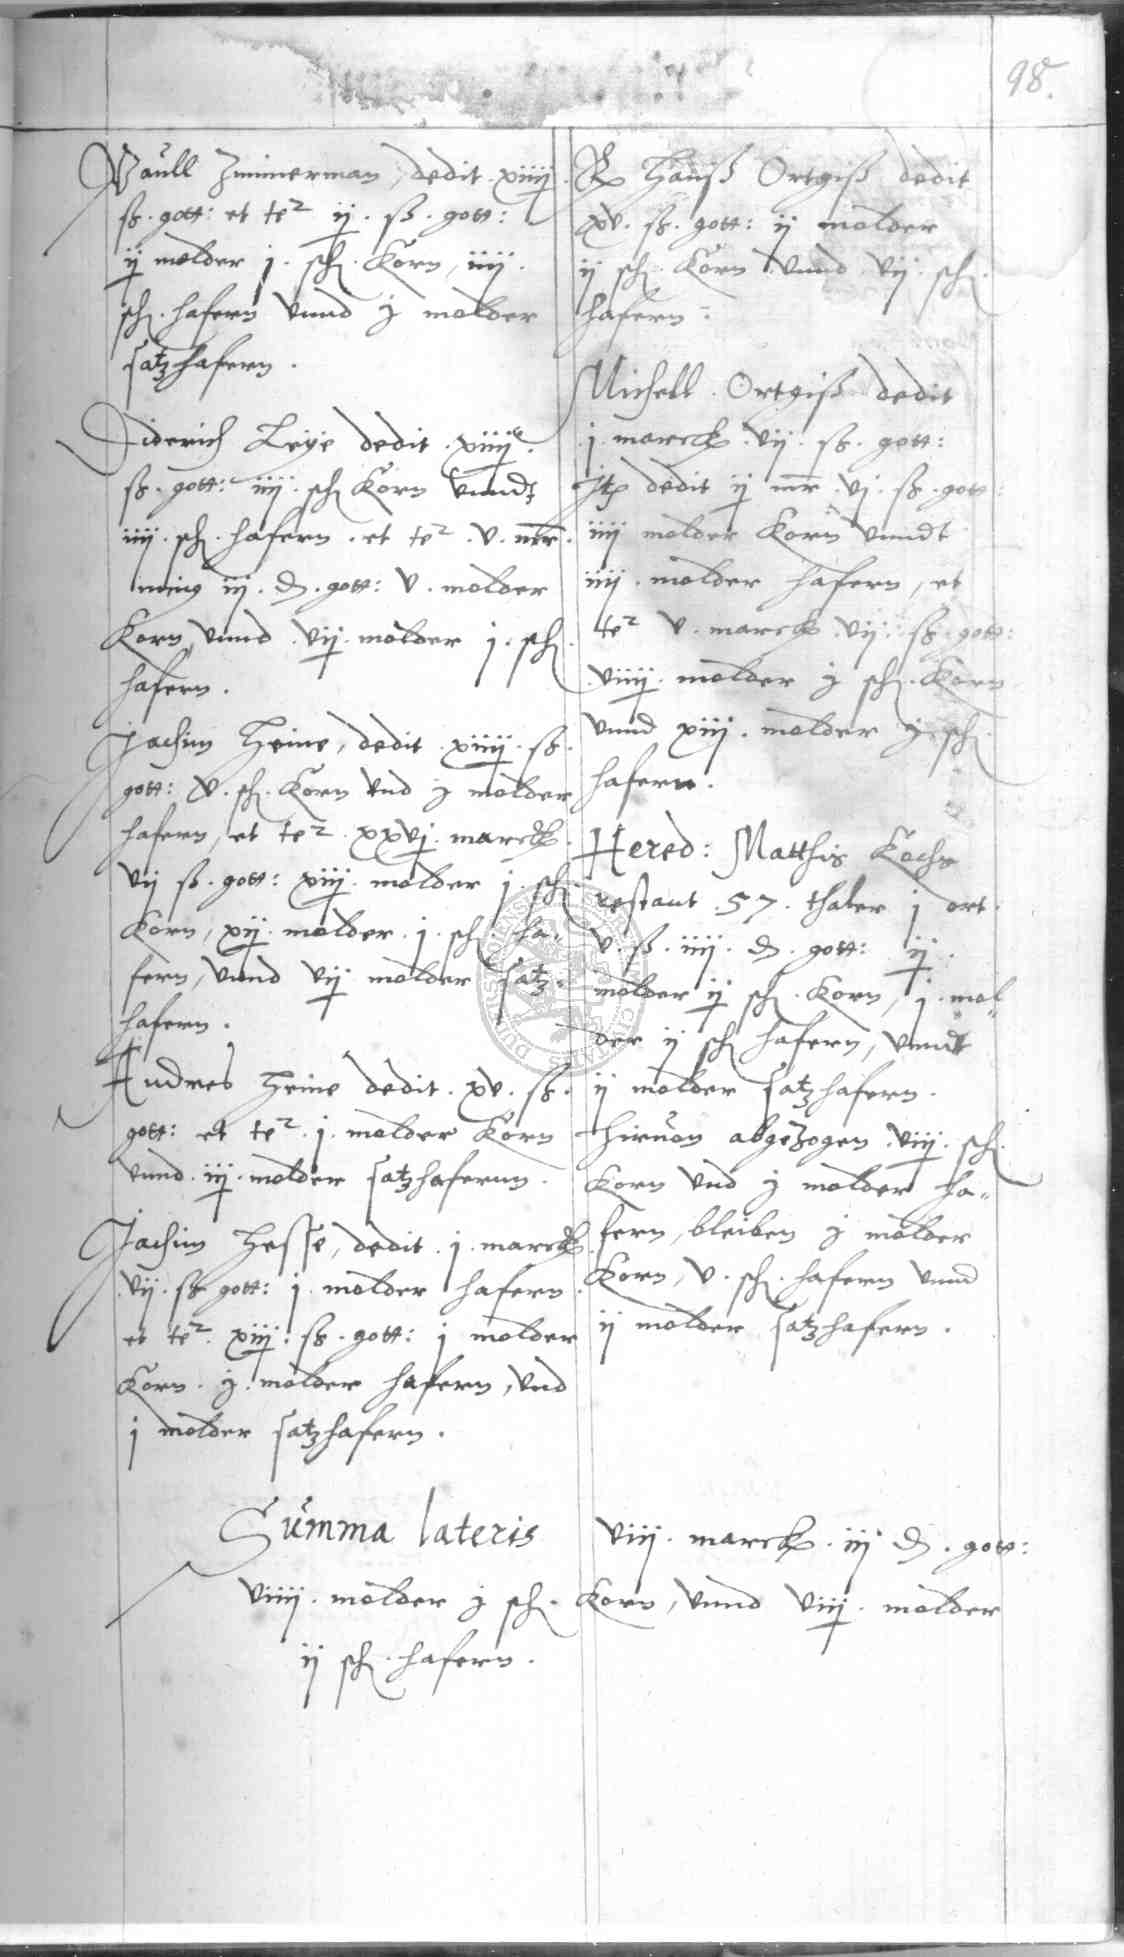 98.
Paull Zimmerman, dedit xiiij
ß. gott: et te² ij. ß. gott:
ij molder j. sch. Korn, iiij.
sch. hafern vnnd ij molder
satzhafern.
Diderich Leÿe dedit xiiij.
ß. gott: iiij. sch Korn vnndt
iiij. sch. hafern. et te² . v. mr.
minq iij. d. gott: v. molder
Korn, vnnd vij. molder j. sch
hafern.
Jachim Heine, dedit xiiij. ß.
gott: v. sch. Korn vnd ij molder
hafern, et te² xxvj. marck
vij ß. gott: xiij. molder j. sch.
Korn, xij. molder j. sch. ha-
fern, vnnd vij molder satz-
hafern.
Andres Heine dedit. xv. ß.
gott: et te² . j. molder Korn
vnnd iij. molder satzhafernn.
Jachim Hesse, dedit j. marck
vij. ß. gott: j. molder hafern
et te² xiij. ß. gott: j molder
Korn. ij. molder hafern, vnd
j molder satzhafern.
Hanß Ortgiß dedit
xv. ß. gott: ij molder
ij sch. Korn vnnd vij. sch.
hafern
Michell Ortgiß dedit
j. marck vij. ß. gott:
Jtp dedit ij mr vj. ß. gott:
iiij molder Korn vnndt
iiij. molder hafern, et
te² v. marck vij. ß. gott:
viiij. molder ij sch. Korn
vnnd xiij. molder ij sch.
hafern.
Hered: Matthis Kochs
restant 57. thaler j ort.
v. ß. iiij. d. gott: ij.
molder ij sch. Korn, j. mol-
der ij sch hafern, vnndt
ij molder satzhafern.
Hiruon abgezogen viij. sch.
Korn vnd ij molder ha-
fern, bleiben ij molder
Korn, v. sch. hafern vnnd
ij molder satzhafern.
Summa lateris viij. marck iij d. gott:
viiij. molder ij sch. Korn, vnnd viij. molder
ij sch. hafern.